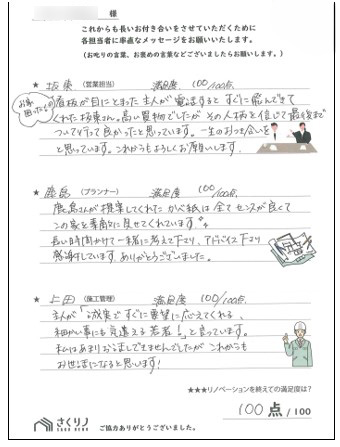 様
これからも長いお付き合いをさせていただくために
各担当者に率直なメッセージをお願いいたします。
(お叱りの言葉、お褒めの言葉などございましたらお願いします。)
★ 坂東 (営業担当) 満足度 100/100点
看板が目にとまった主人が電話するとすぐに飛んできて
くれた坂東さん。高い買物でしたがその人柄を信じて最後まで
ついて行って良かったと思っています。一生のおつき合いを
と思っています。これからもよろしくお願いします。
★ 鹿島 (プランナー) 満足度 100/100点
鹿島さんが提案してくれたかべ紙は全てセンスが良くて
この家を素敵に見せてくれています。
長い時間かけて一緒に考えて下さり、アドバイス下さり
感謝しています。ありがとうございました。
★ 上田 (施工管理) 満足度 100/100点
主人が「誠実ですぐに要望に応えてくれる、
細かい事にも気遣える若者!」と言っています。
私はあまりお話しできませんでしたがこれからも
お世話になると思います!
★★★リノベーションを終えての満足度は?
100 点 / 100
さくリノ
SAKU RENO
ご協力ありがとうございました。